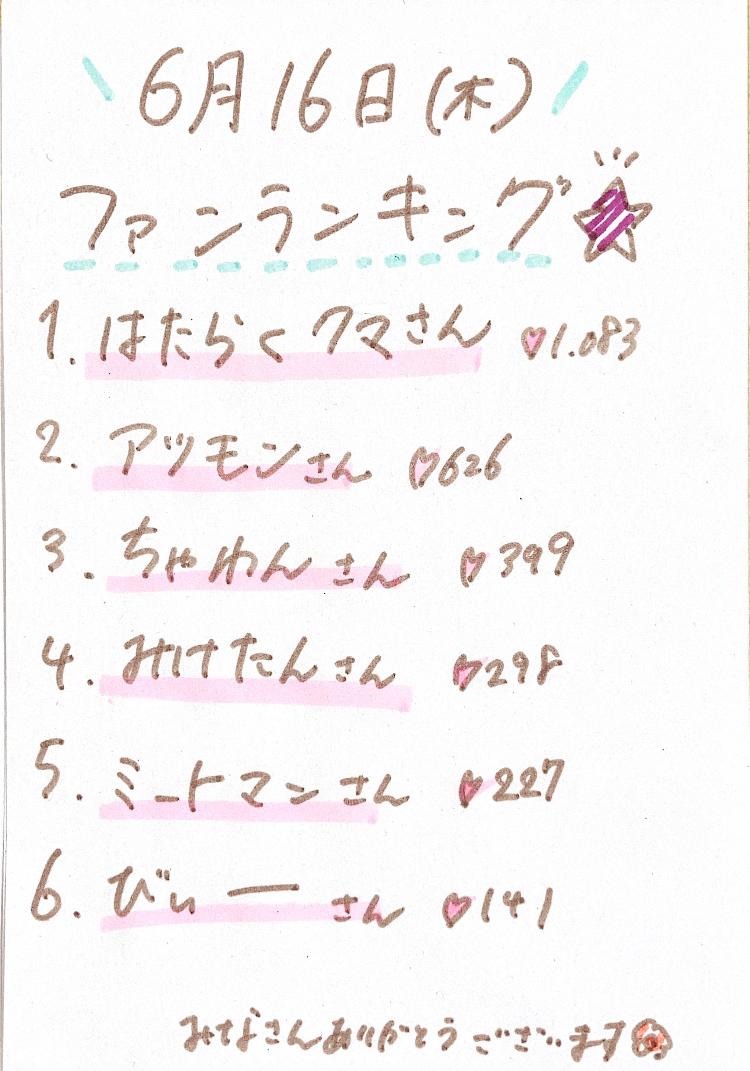 6月16日(木)
ファンランキング
1. はたらくクマさん ♡1.083
2. アツモンさん ♡626
3. ちゃわんさん ♡399
4. みけたんさん ♡298
5. ミートマンさん ♡227
6. びぃーさん ♡141
みなさんありがとうございます